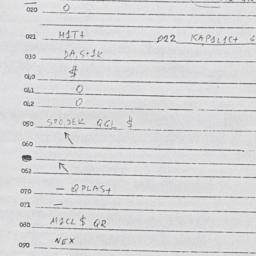 020 0
021 M1T+ D22 KAP1L1C+
030 DA,S+1K
040 $
041 0
042 0
050 SPO,DEK QGL $
060
052
070 — QPLAS+
071 —
080 M1CL $ QR
090 NEX